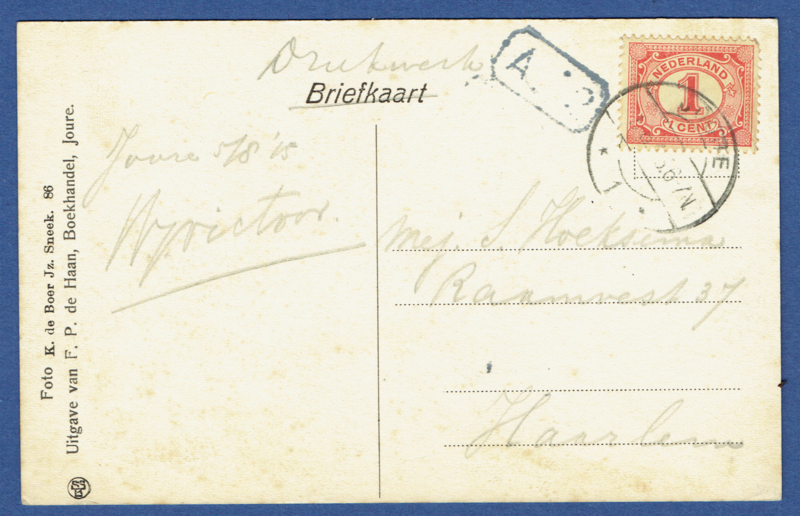 Drukwerk
Briefkaart
A. 2
NEDERLAND
1
CENT
Joure 5/8 '15
Mej. S. Hoeksema
Raamvest 37
Haarlem
Foto K. de Boer Jz. Sneek. 86
Uitgave van F. P. de Haan, Boekhandel, Joure.